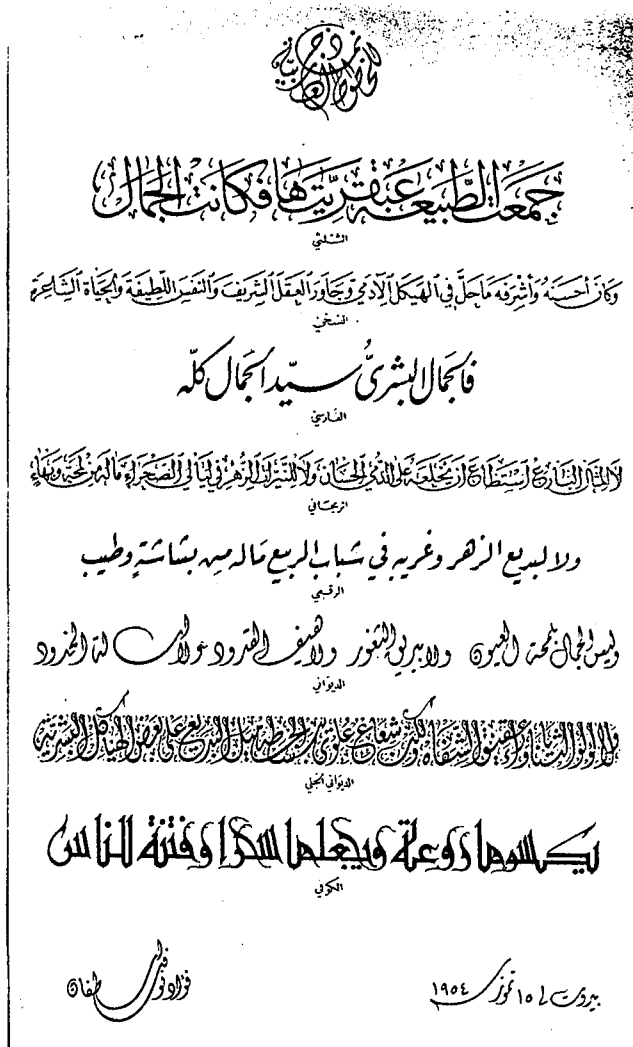 نماذج الخطوط العربية
جمعت الطبيعة عبقريتها فكانت الجمال
الثلثي
وكان أحسنه وأشرفه ما حل في الهيكل الآدمي وجاور العقل الشريف والنفس اللطيفة والحياة الشاعرة
النسخي
فالجمال البشري سيد الجمال كله
الفارسي
لا المثال البارع استطاع أن يخلعه على الدمى الحسان ولا للنيرات الزهر في ليالي الصحراء ما له من لمحة وبهاء
الريحاني
ولا لبديع الزهر وغريبه في شباب الربيع ماله من بشاشة وطيب
الرقعي
وليس الجمال بلمحة العيون ولا ببريق الثغور ولا هيف القدود ولا أسالة الخدود
الديواني
ولا لؤلؤ الثنايا وعقيق الشفاه ولكن شعاع علوي يبسطه الجميل البديع على بعض الهياكل البشرية
الديواني الجلي
يكسوها روعة ويجعلها سحرا وفتنة للناس
الكوفي
بيروت في ١٥ تموز ١٩٥٤
فؤاد اسطفان